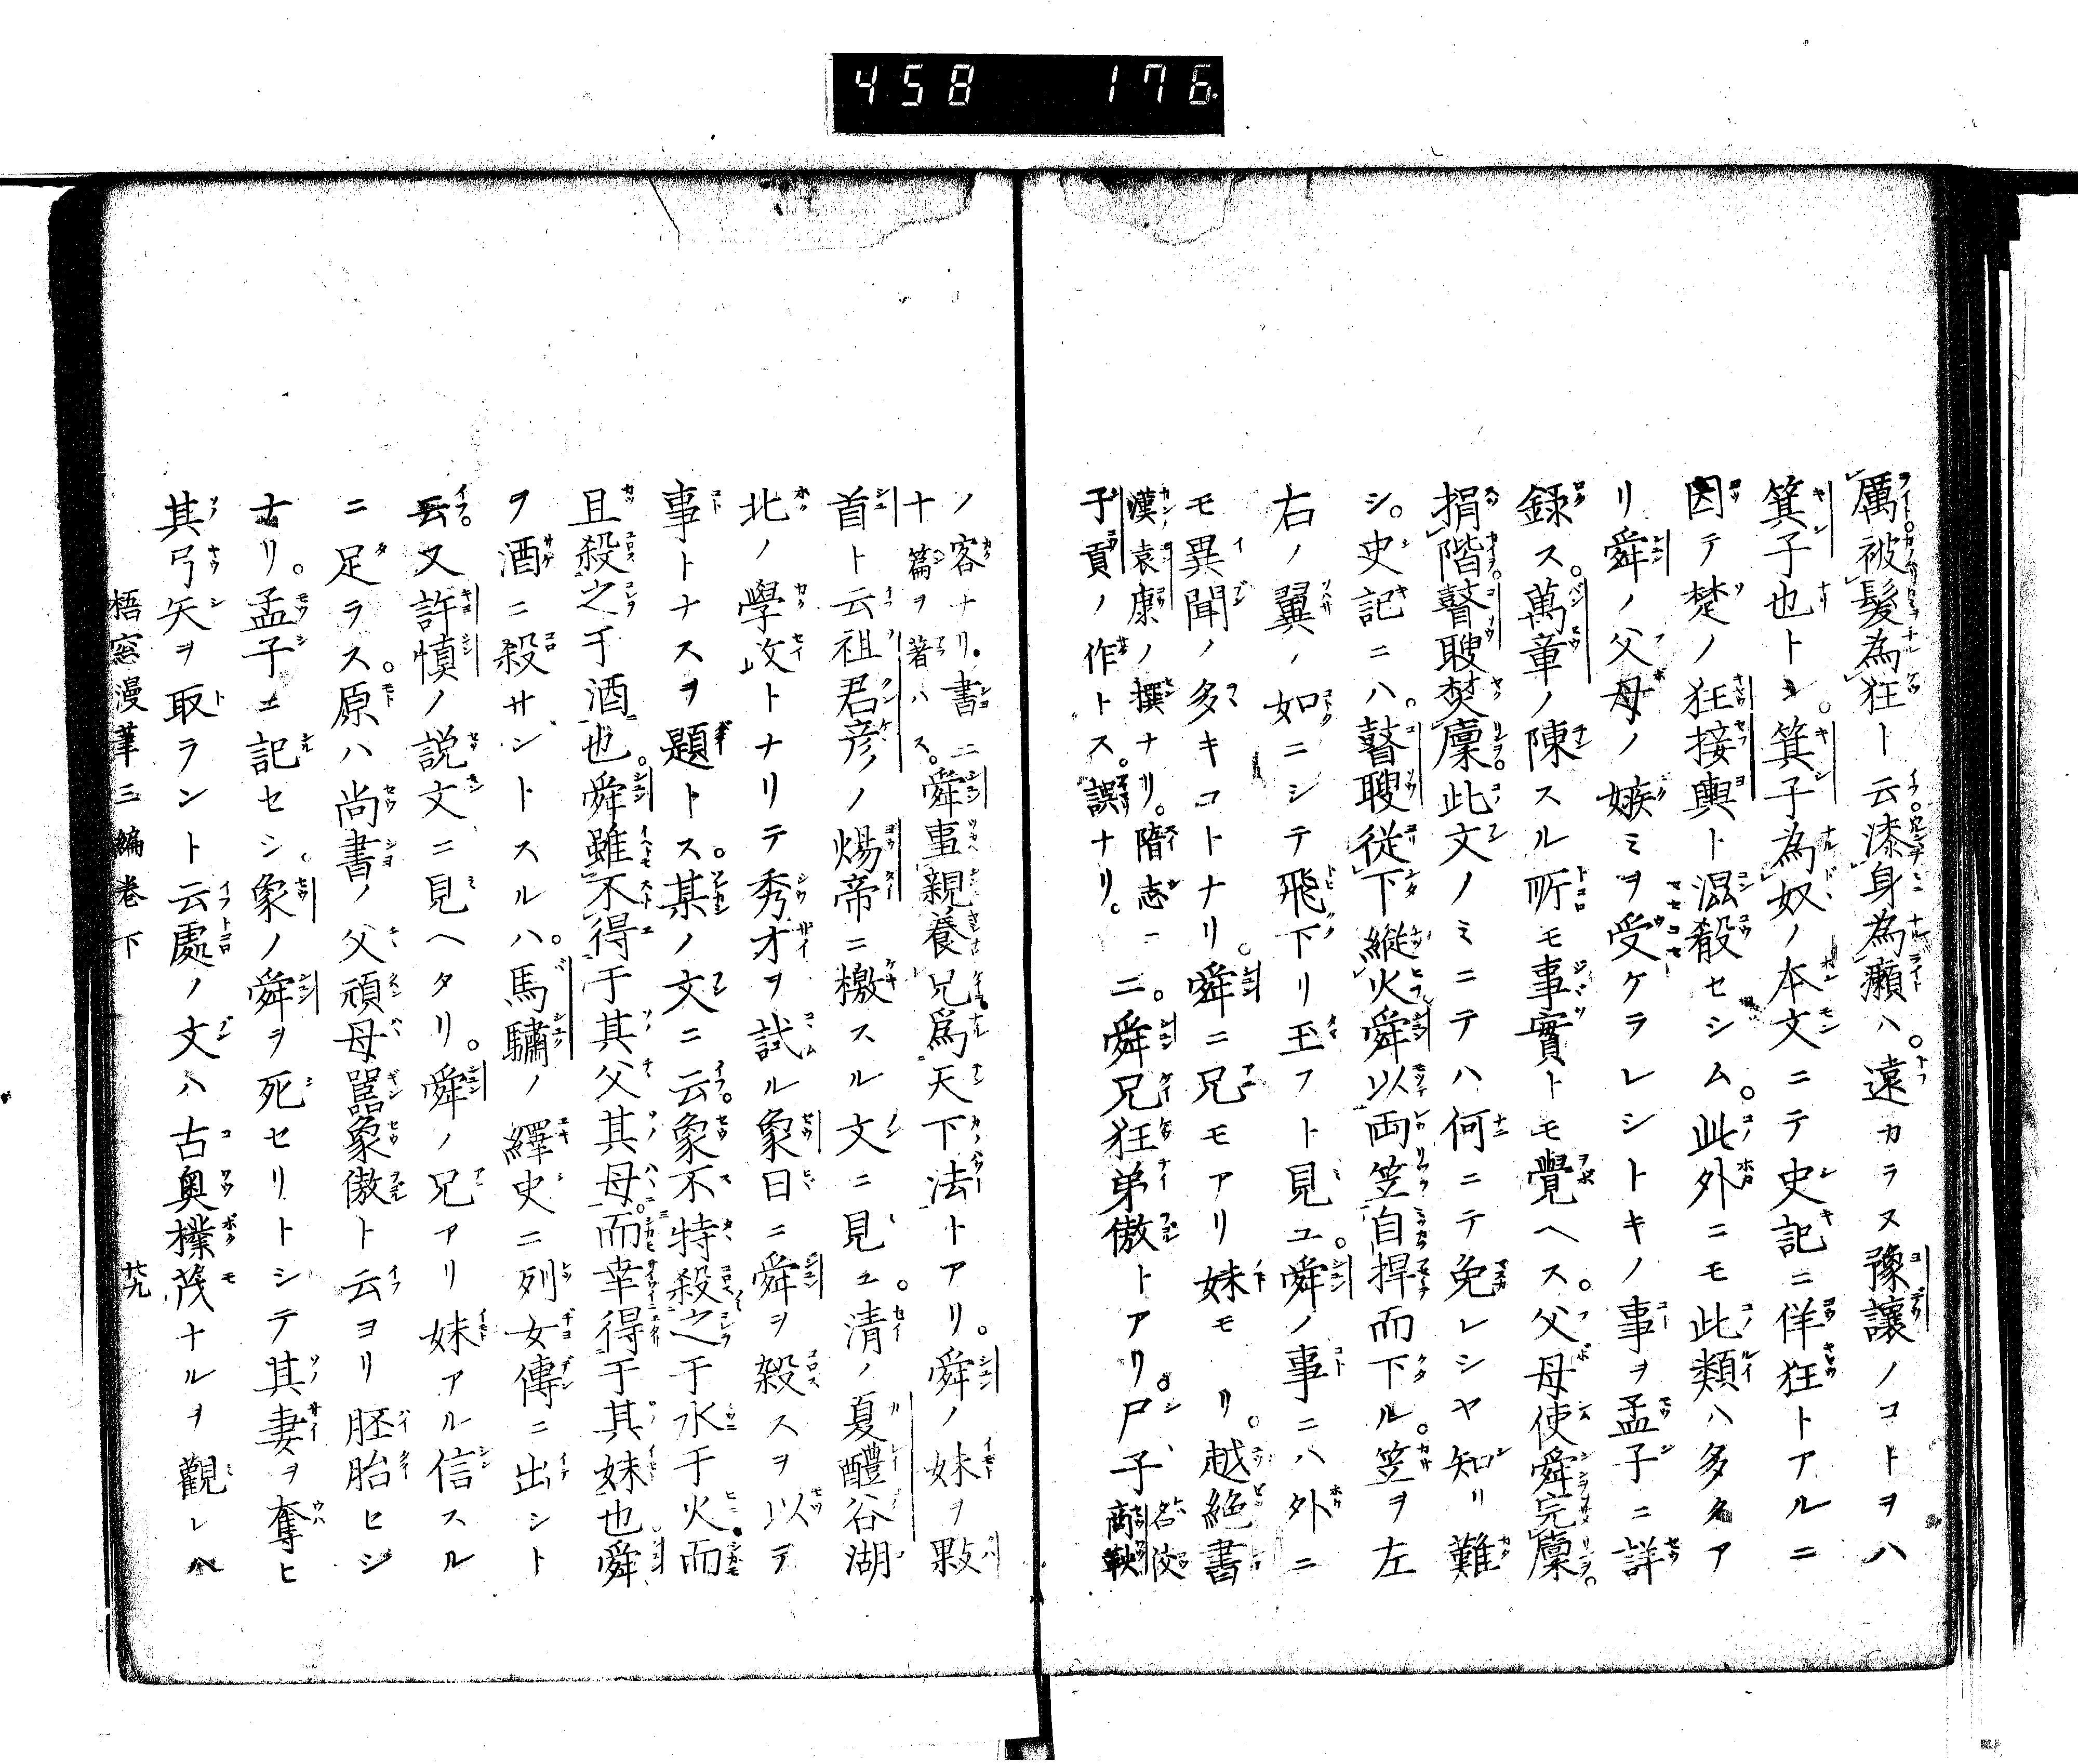 458 176
厲被髮為狂ト云漆身為癩ハ。遠カラス豫讓ノコトヲハ
箕子也トシ。箕子為奴ノ本文ニテ史記ニ佯狂トアルニ
因テ楚ノ狂接輿ト混殽セシム。此外ニモ此類ハ多クア
リ舜ノ父母ノ嫉ミヲ受ケラレシトキノ事ヲ孟子ニ詳
録ス。萬章ノ陳スル所モ事實トモ覺ヘス。父母使舜完廩。
捐階瞽瞍焚廩此文ノミニテハ何ニテ免レシヤ知リ難
シ。史記ニハ。瞽瞍從下縱火舜以両笠自捍而下ル。笠ヲ左
右ノ翼ノ如ニシテ飛下リ玉フト見ユ。舜ノ事ニハ外ニ
モ異聞ノ多キコトナリ。舜ニ兄モアリ妹モ リ。越絶書
漢袁康ノ撰ナリ。隋志ニ
子貢ノ作トス。誤ナリ。 二。舜兄狂弟傲トアリ。尸子 名佼
商鞅
ノ客ナリ。書二
十篇ヲ著ハス。 舜事親養兄爲天下法トアリ。舜ノ妹ヲ敤
首ト云祖君彦ノ煬帝ニ檄スル文ニ見ユ。清ノ夏醴谷湖
北ノ學政トナリテ秀才ヲ試ル象日ニ舜ヲ殺スヲ以テ
事トナスヲ題トス。某ノ文ニ云。象不特殺之于水于火而
且殺之于酒也。舜雖不得于其父其母。而幸得于其妹也。舜
ヲ酒ニ殺サントスルハ。馬驌ノ繹史ニ列女傳ニ出シト
云。又許慎ノ説文ニ見ヘタリ。舜ノ兄アリ妹アル信スル
ニ足ラス。原ハ尚書ノ父頑母嚚象傲ト云ヨリ胚胎ヒシ
ナリ。孟子ニ記セシ。象ノ舜ヲ死セリトシテ其妻ヲ奪ヒ
其弓矢ヲ取ラント云處ノ文ハ古奥樸茂ナルヲ觀レハ
梧窓漫筆三編巻下 廿九